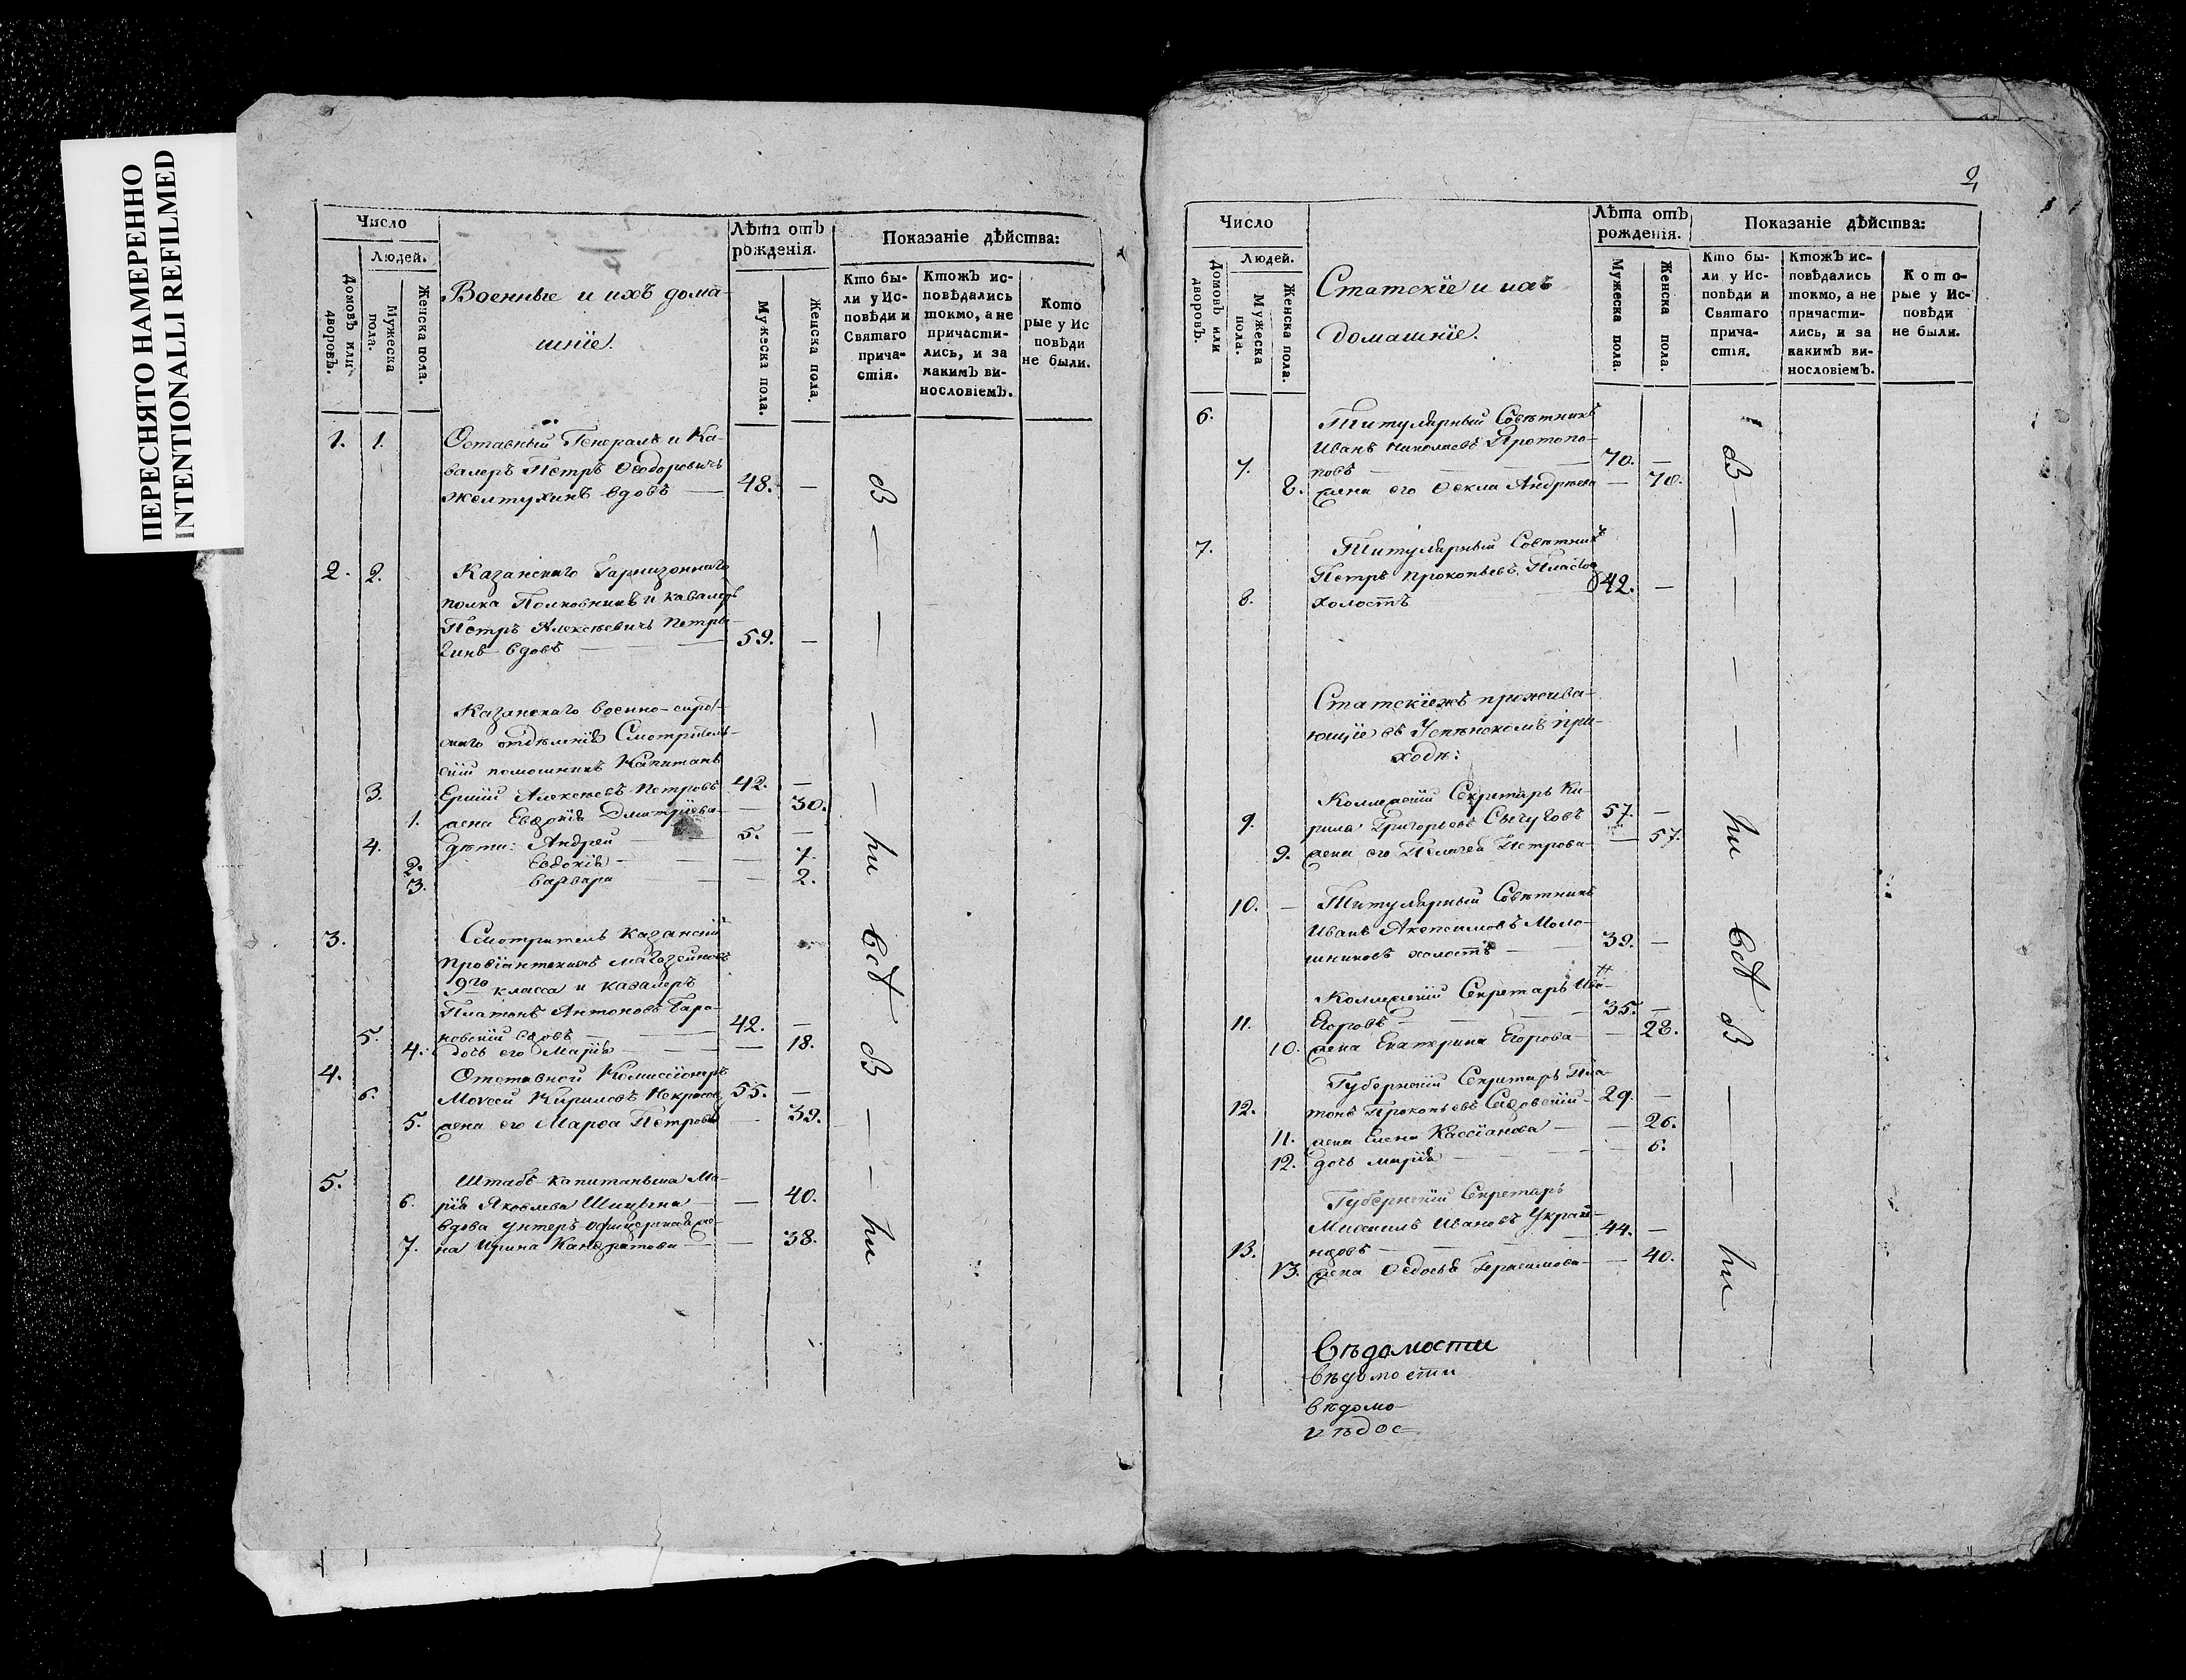 ПЕРЕСНЯТО НАМЕРЕННО
INTENTIONALLI REFILMED
Число
Людей.
Домовъ или дворовъ.
Мужеска пола.
Женска пола.
Военные и ихъ дома-
шніе.
Лѣта отъ
рожденія.
Мужеска пола.
Женска пола.
Показаніе дѣйства:
Кто бы-
ли у Ис-
повѣди и
Святаго
прича-
стія.
Ктожъ ис-
повѣдались
токмо, а не
причасти-
лись, и за
какимъ ви-
нословіемъ.
Кото
рые у Ис
повѣди
не были.
1. 1. Оставный Генералъ и Ка-
валеръ Петръ Ѳеодоровичъ
Желтухинъ вдовъ — 48. —
2. 2. Казанскаго Гарнизоннаго
полка Полковникъ и кавалеръ
Петръ Алексѣевичь
вдовъ — 59. —
Казанскаго военно-сирот-
скаго отдѣленія Смотритель-
скій помошникъ Капитанъ
3. Алексѣевъ Петровъ 42. —
1. жена Евдокія Дмитріева — 30.
4. дѣти: Андрей 5. —
2. Евдокія — — 7.
3. Варвара — — 2.
3. Смотритель Казанскій
провіантскихъ магазейновъ
9го класса и кавалеръ
Платонъ Антоновъ Бара-
5. новскій вдовъ — 42. —
4. дочь его Марія — — 18.
4. Отставной Комиссіонеръ
6. Моѵсей Кириловъ Некрасовъ 55. —
5. жена его Марѳа Петрова — 39.
5. Штабъ-капитанша Ма-
6. рія Яковлева — 40.
вдова унтеръ офицерская же-
7. на Ирина Кандратова — — 38.
В
ни
всѣ
В
ни
Число
Людей.
Домовъ или дворовъ.
Мужеска пола.
Женска пола.
Статскіе и ихъ
домашніе.
Лѣта отъ
рожденія.
Мужеска пола.
Женска пола.
Показаніе дѣйства:
Кто бы-
ли у Ис-
повѣди и
Святаго
прича-
стія.
Ктожъ ис-
повѣдались
токмо, а не
причасти-
лись, и за
какимъ ви-
нословіемъ.
Кото-
рые у Ис-
повѣди
не были.
6. Титулярный Совѣтникъ
Иванъ Николаевъ Протопо-
7. повъ — 70. —
8. жена его Ѳекла Андреева — 70.
7. Титулярный Совѣтникъ
Петръ Прокопьевъ
8. холостъ 42. —
Статскіежъ прожива-
ющіе въ Успенскомъ при-
ходѣ:
Коллежскій Секретарь Ки-
9. рила Григорьевъ 57. —
9. жена его Пелагея Петрова — 57.
10. — Титулярный Совѣтникъ
Иванъ Акепсимовъ Моло-
шниковъ холостъ — 39. —
Коллежскій Секретарь Ива-
11. Егоровъ — 35. —
10. жена Екатерина Егорова — 28.
Губернскій Секретарь Пла-
12. тонъ Прокопьевъ Садовскій — 29. —
11. жена Елена Кассіанова — — 26.
12. дочь Марія — — 6.
Губернскій Секретарь
Михаилъ Ивановъ Украи-
13. нцовъ — 44. —
13. жена Ѳедосья Герасимова — 40.
В
ни
всѣ
В
ни
вѣдомости
вѣдомости
вѣдомо-